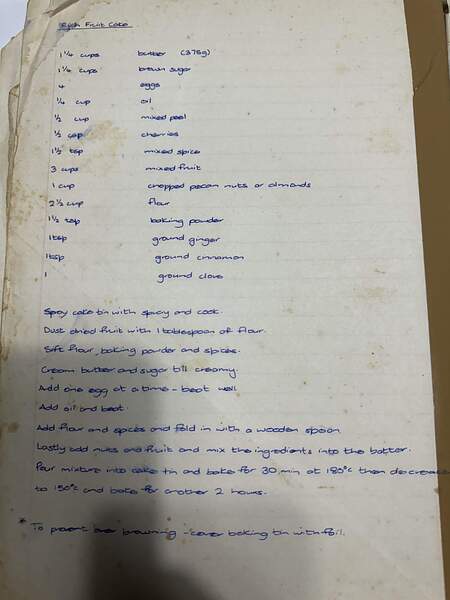 Rich Fruit Cake
1 1/4 cups butter (375g)
1 1/4 cups brown sugar
4 eggs
1/4 cup oil
1/2 cup mixed peel
1/2 cup cherries
1 1/2 tsp mixed spice
3 cups mixed fruit
1 cup chopped pecan nuts or almonds
2 1/2 cup flour
1 1/2 tsp baking powder
1 tsp ground ginger
1 tsp ground cinnamon
1 ground clove
Spray cake tin with spray and cook.
Dust dried fruit with 1 tablespoon of flour.
Sift flour, baking powder and spices.
Cream butter and sugar till creamy.
Add one egg at a time - beat well
Add oil and beat.
Add flour and spices and fold in with a wooden spoon
Lastly add nuts and fruit and mix the ingredients into the batter.
Pour mixture into cake tin and bake for 30 min at 180°c then decrease
to 150°c and bake for another 2 hours.
* To prevent over browning - cover baking tin with foil.